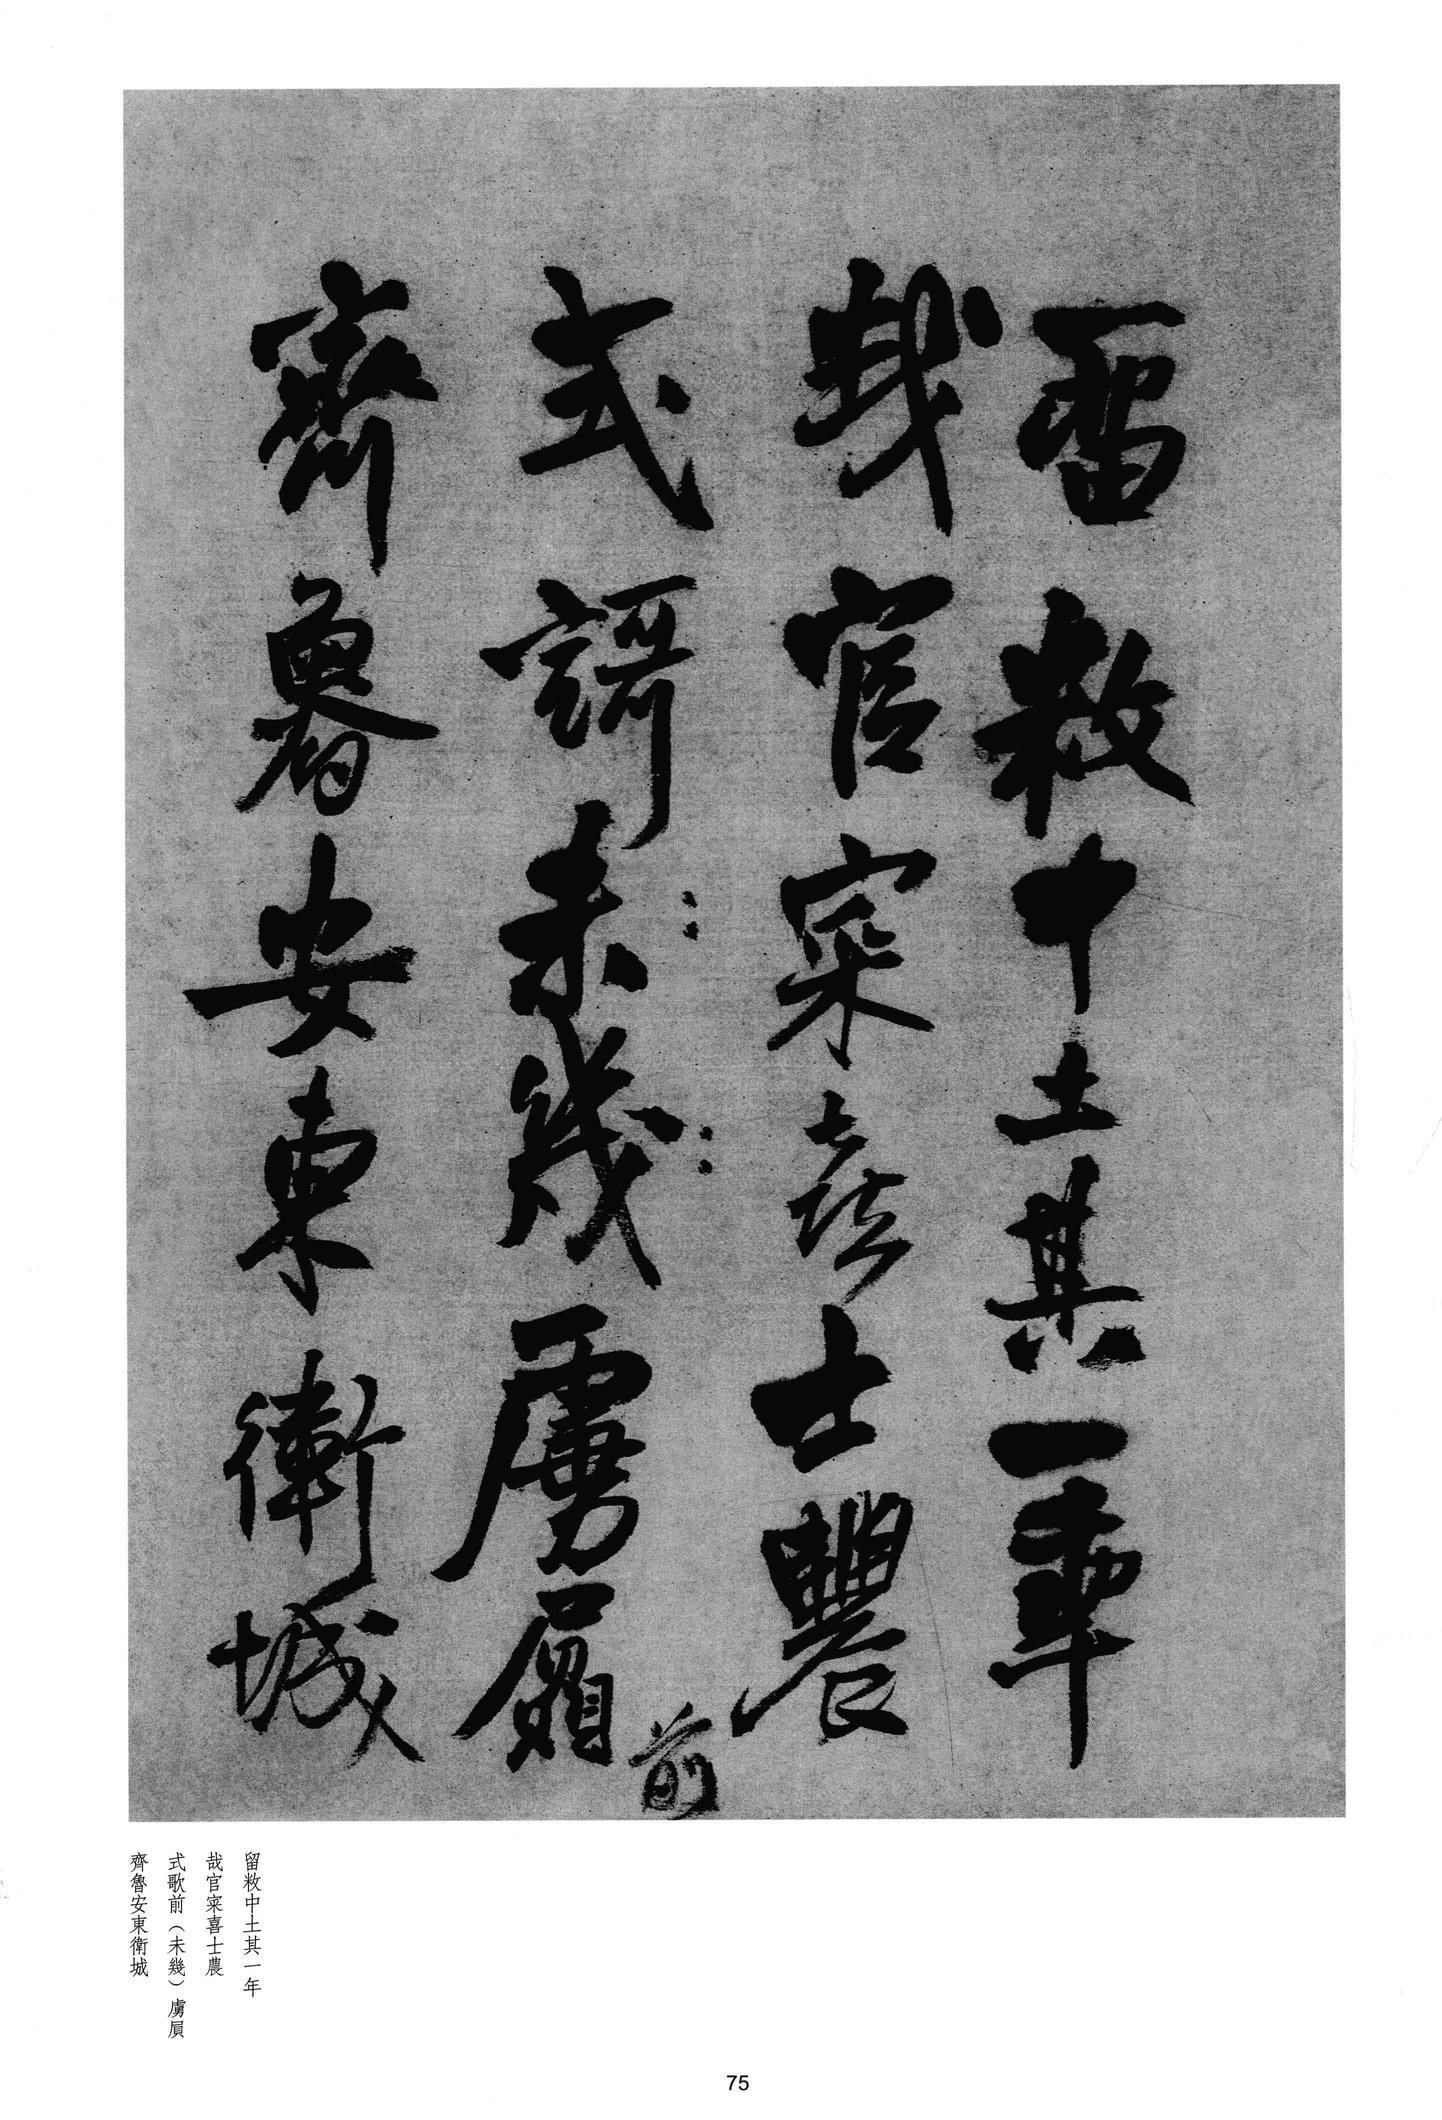 留敉中土其一年
哉官寀喜士農
式謌未幾虜屓
前
齊魯安東衛城
留敉中土其一年
哉官寀喜士農
式歌前（未幾）虜屓
齊魯安東衛城
75